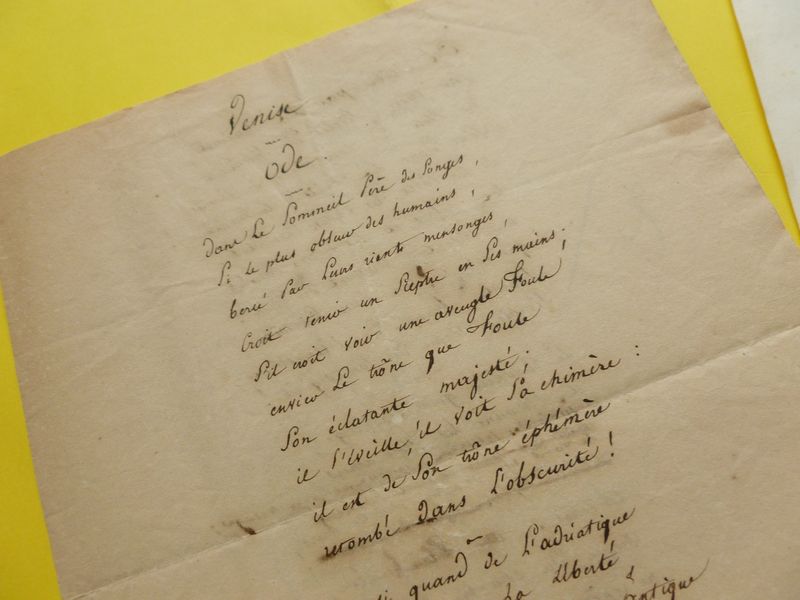 Venise
Ode.
Dans Le Sommeil Père des Songes,
Si le plus obscur des humains,
bercé Par Leurs riants mensonges,
Croit tenir un Sceptre en Ses mains;
S'il croit voir une aveugle Foule,
envier Le trône que Foule
Son éclatante majesté;
il s'éveille, il voit Sa chimère:
il est de Son trône éphémère
retombé Dans L'obscurité!
quand de L'adriatique
La Liberté